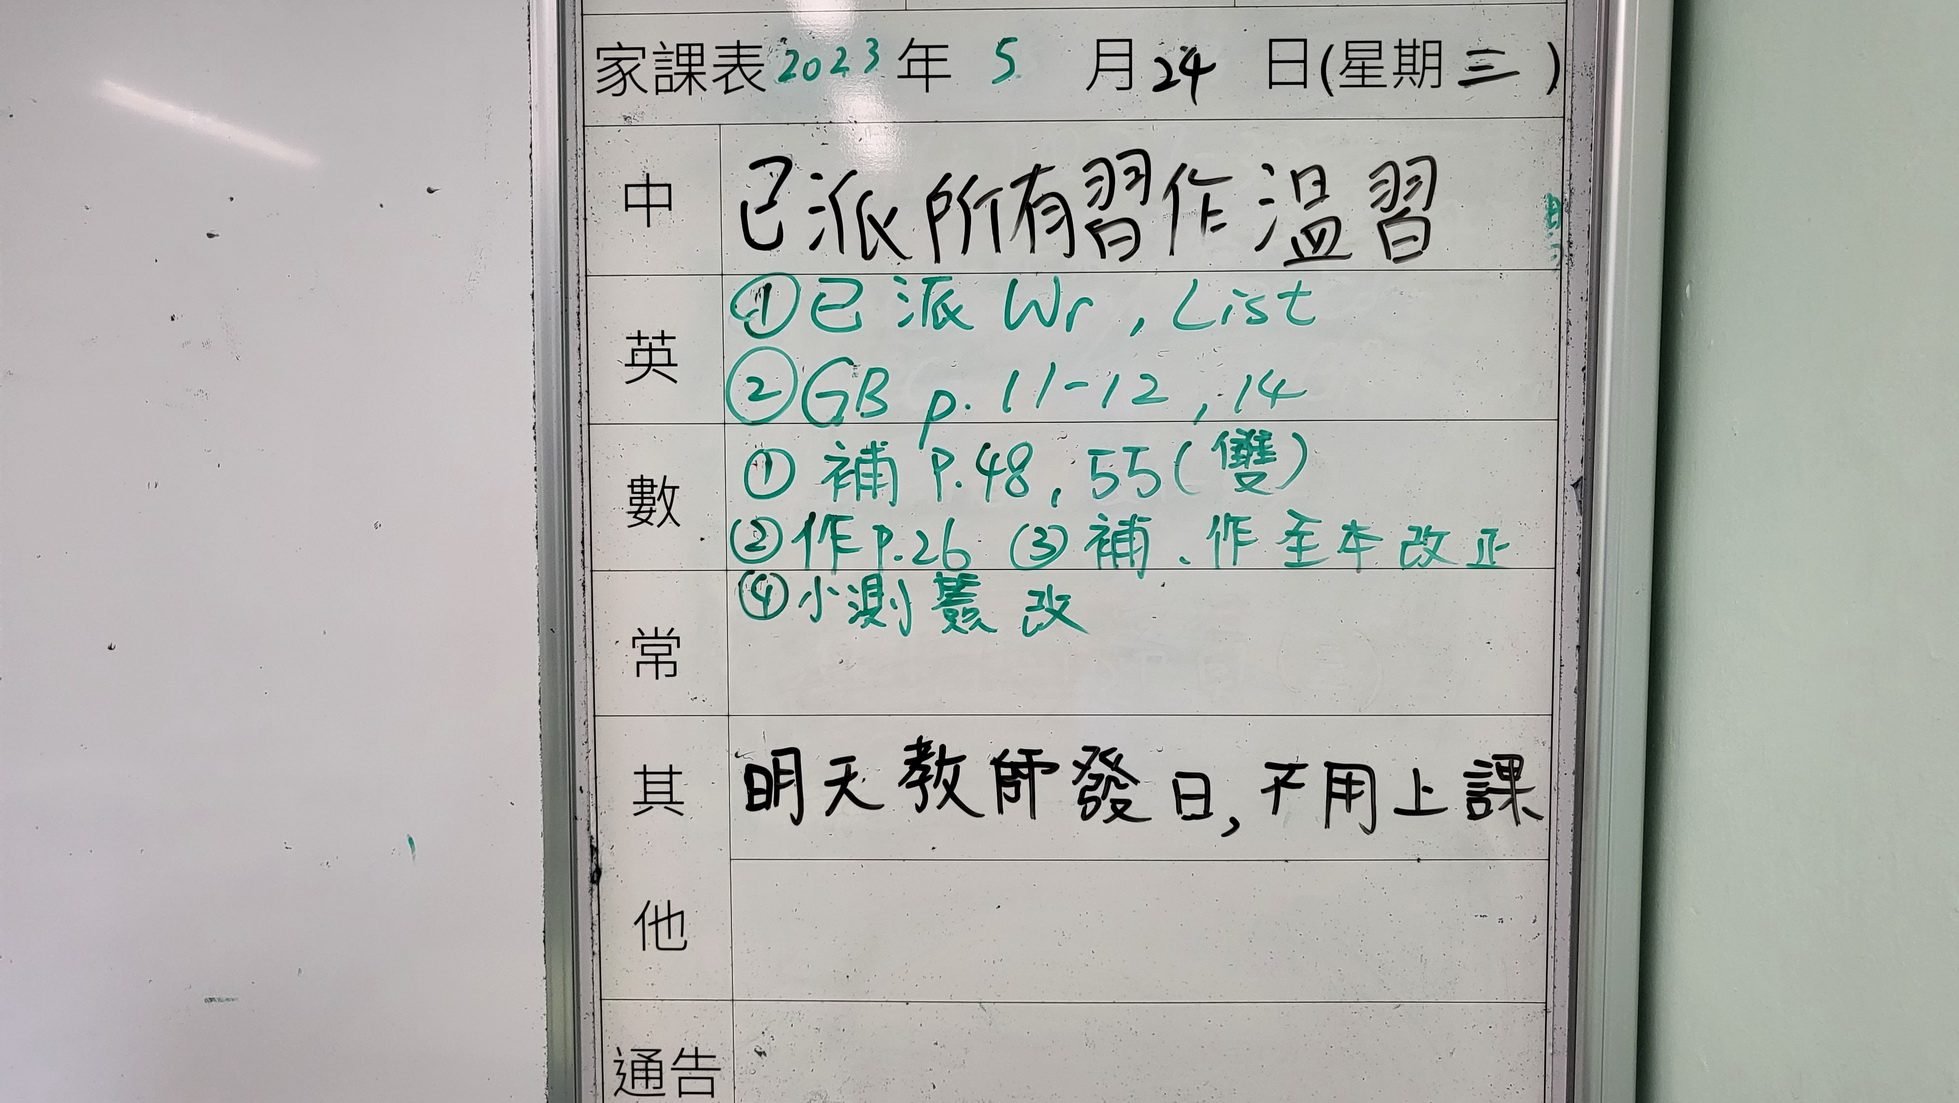 家課表 2023 年 5 月 24 日(星期三)
中 已派所有習作溫習
英 ①已派 Wr, List
②GB p.11-12, 14
數 ① 補 P.48, 55(雙)
②作P.26 ③補、作至本改正
④小測簿改
常
其他 明天教師發日,不用上課
通告